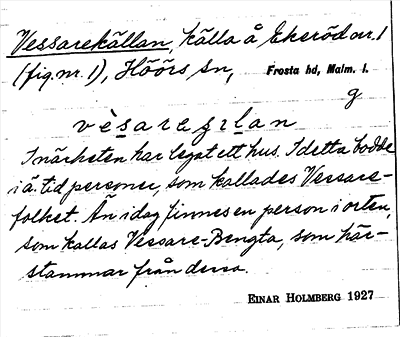 Vessarekällan, källa å Ekeröd nr. 1
(fig. nr. 1), Höörs sn, Frosta hd, Malm. l.
g
vèsareȥlan
I närheten har legat ett hus. I detta bodde
i ä. tid personer, som kallades Vessare-
folket. Än i dag finnes en person i orten,
som kallas Vessare-Bengta, som här-
stammar från dessa.
EINAR HOLMBERG 1927